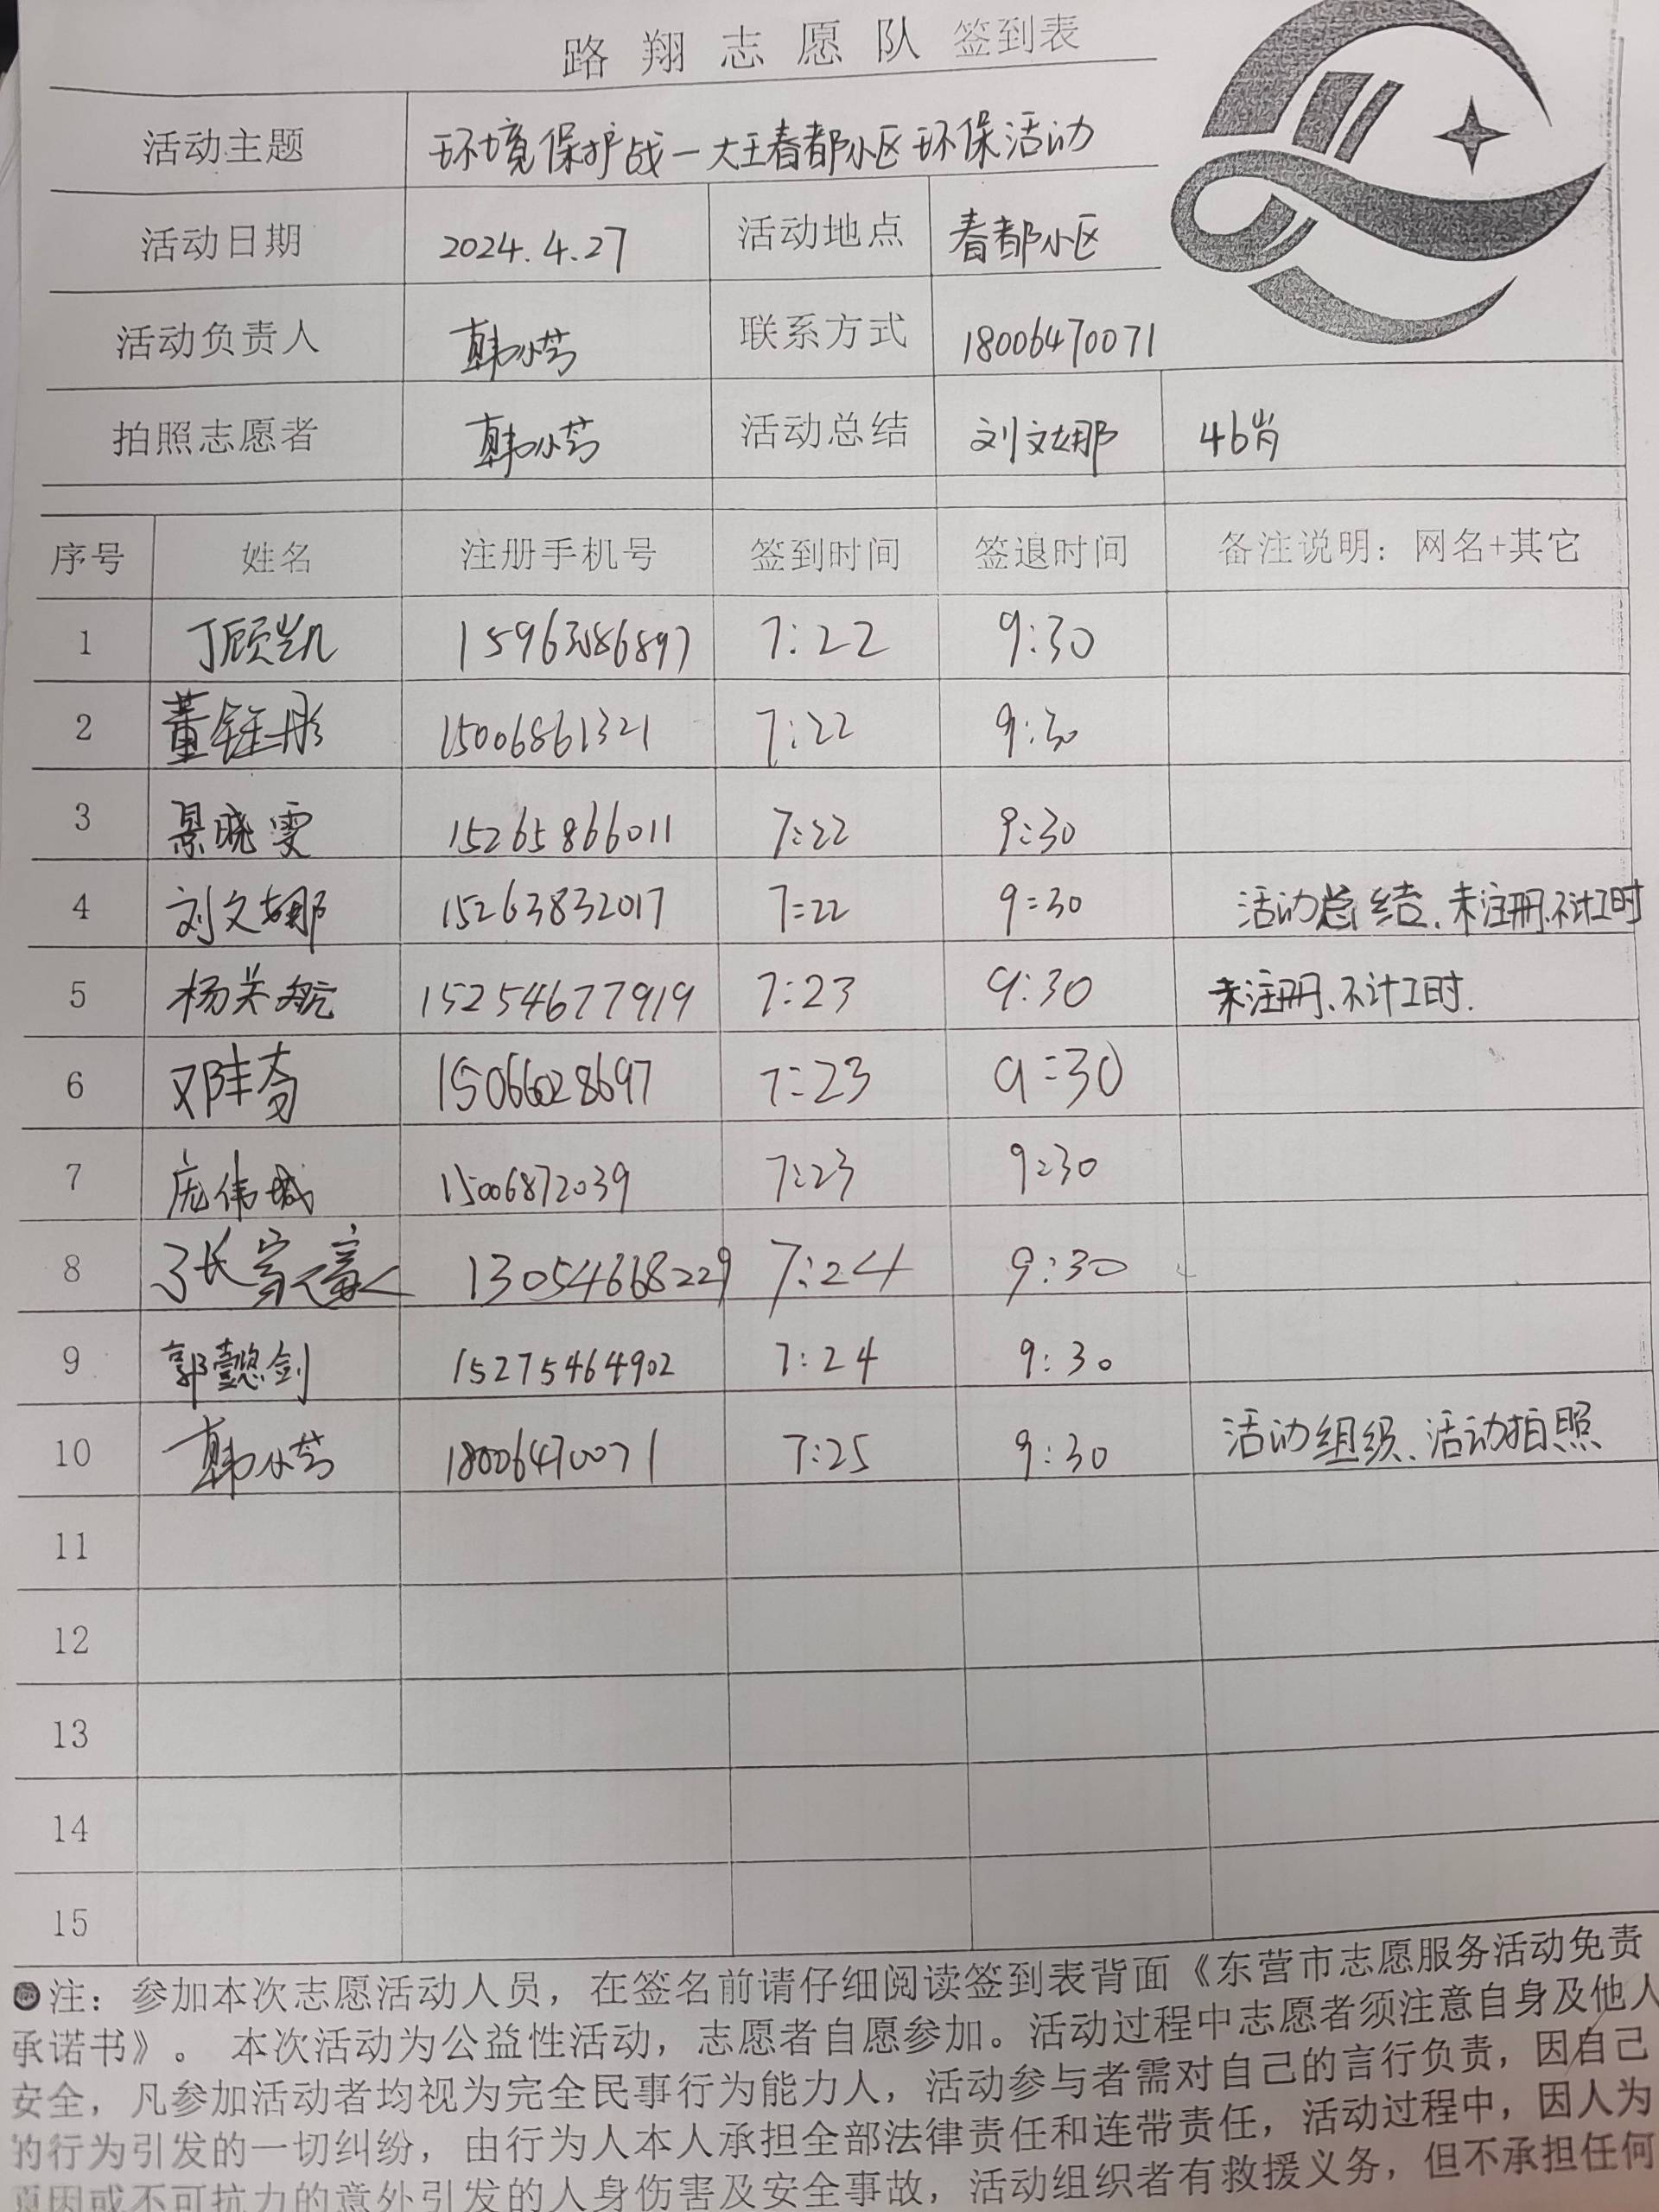 路翔志愿队 签到表
活动主题 环境保护战一大王春都小区环保活动
活动日期 2024.4.27 活动地点 春都小区
活动负责人 韩小芳 联系方式 18006470071
拍照志愿者 韩小芳 活动总结 刘文娜 46岁
序号 姓名 注册手机号 签到时间 签退时间 备注说明：网名+其它
1 丁顾凯 7:22 9:30
2 15006861321 7:22 9:30
3 景晓雯 15265866011 7:22 9:30
4 刘文娜 15263832017 7:22 9:30 活动总结、未注册、不计工时
5 杨关航 15254677919 7:23 9:30 未注册、不计工时.
6 15066028697 7:23 9:30
7 庞伟城 15006872039 7:23 9:30
8 13054668229 7:24 9:30
9 郭懿剑 15275464902 7:24 9:30
10 韩小芳 18006470071 7:25 9:30 活动组织、活动拍照
11
12
13
14
15
注：参加本次志愿活动人员，在签名前请仔细阅读签到表背面《东营市志愿服务活动免责
承诺书》。 本次活动为公益性活动，志愿者自愿参加。活动过程中志愿者须注意自身及他人
安全，凡参加活动者均视为完全民事行为能力人，活动参与者需对自己的言行负责，因自己
的行为引发的一切纠纷，由行为人本人承担全部法律责任和连带责任，活动过程中，因人为
原因或不可抗力的意外引发的人身伤害及安全事故，活动组织者有救援义务，但不承担任何